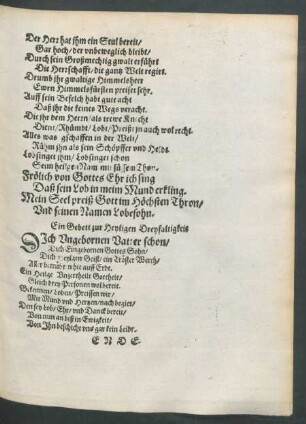 Der Herr hat jhm ein Stul bereit/
Gar hoch/ der vnbeweglich bleibt/
Durch sein Großmechtig gwalt erführt
Die Herrschafft/ die gantz Welt regirt.
Drumb jhr gwaltige Himmelsheer
Ewen Himmelsfürsten preiset sehr.
Auff sein Befelch habt gute acht
Daß jhr des keines Wegs veracht.
Die jhr dem Herrn/ als trewe Knecht
Dient/ Rhümbt/ Lobt/ Preist jn auch wol recht.
Alles was gschaffen in der Welt/
Rühm jhn als sein Schöpffer vnd Held.
Lobsinget jhm/ Lobsinget schon
Seim heilgen Nam mit süssem Thon.
Frölich von Gottes Ehr ich sing
Daß sein Lob in meim Mund erkling.
Mein Seel preiß Gott im Höchsten Thron/
Vnd seinen Namen Lobesohn.
Ein Gebett zur Heyligen Dreyfaltigkeit
DIch Vngebornen Vatter schon/
Dich Eingebornen Gottes Sohn/
Dich Heyligen Geist/ ein Tröster Werth/
All erbarn hie auff Erd.
Ein Heilge Vngertheilte Gottheit/
Gleich drey Personen wolbereit.
Bekennen/ Loben/ Preissen wir/
Mit Mund vnd Hertzen/ nach begier/
Den sey lob/ Ehr/ vnd Danck bereit/
Von nun an biß in Ewigkeit/
Von Jhn beschiche vns gar kein leidt.
E N D E